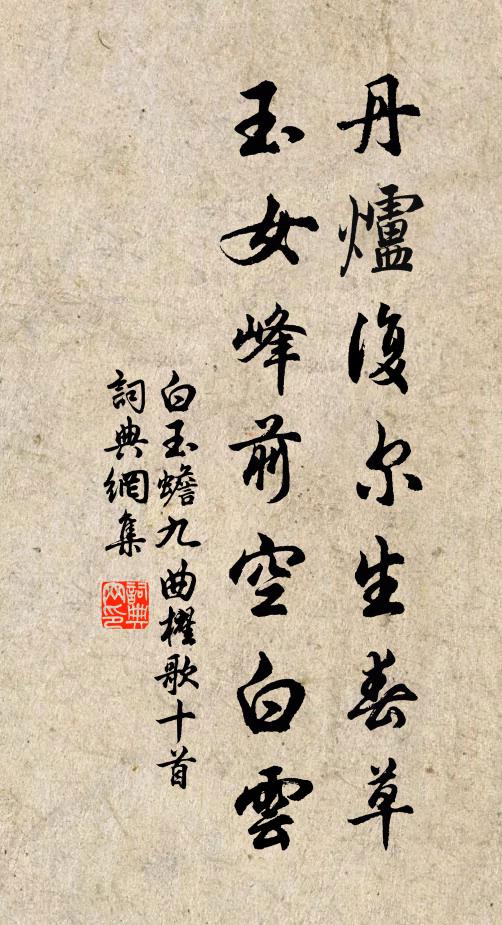 丹爐復尔生春草
玉女峰前空白雲
白玉蟾九曲櫂歌十首
詞典網集
詞典網印